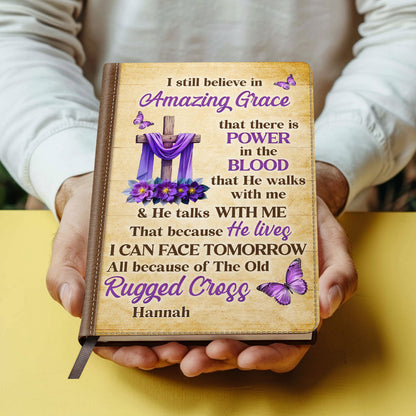 I still believe in
Amazing Grace
that there is
POWER
in the
BLOOD
that He walks
with me
& He talks WITH ME
That because He lives
I CAN FACE TOMORROW
All because of The Old
Rugged Cross
Hannah